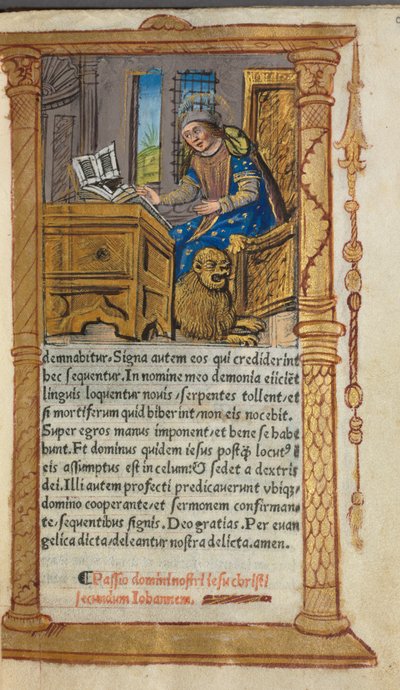 demnabitur. Signa autem eos qui crediderint
hec sequentur. In nomine meo demonia eiiciẽt
linguis loquentur nouis / serpentes tollent / et
si mortiferum quid biberint / non eis nocebit.
Super egros manus imponent / et bene se habe
bunt. Et dominus quidem iesus postq̃ locutꝰ
eis assumptus est in celum: & sedet a dextris
dei. Illi autem profecti predicauerunt vbiqꝫ
domino cooperante / et sermonem confirman-
te / sequentibus signis. Deo gratias. Per euan
gelica dicta / deleantur nostra delicta. amen.
¶ Passio domini nostri iesu christi
secundum Iohannem.